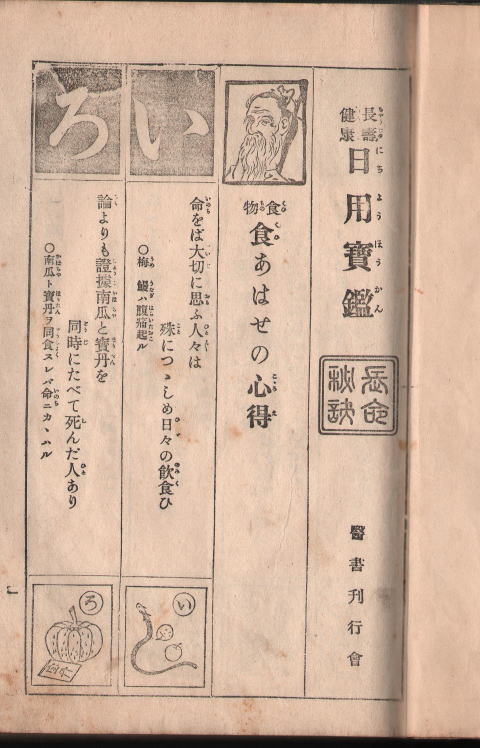 長壽健康
日用寶鑑
長命
秘訣
醫書刊行會
食物
食あはせの心得
い
命をば大切に思ふ人々は
殊につゝしめ日々の飮食ひ
○梅 鰻ハ腹痛起ル
い
ろ
論よりも證據南瓜と寶丹を
同時にたべて死んだ人あり
○南瓜ト寶丹ヲ同食スレバ命ニカヽハル
ろ
一